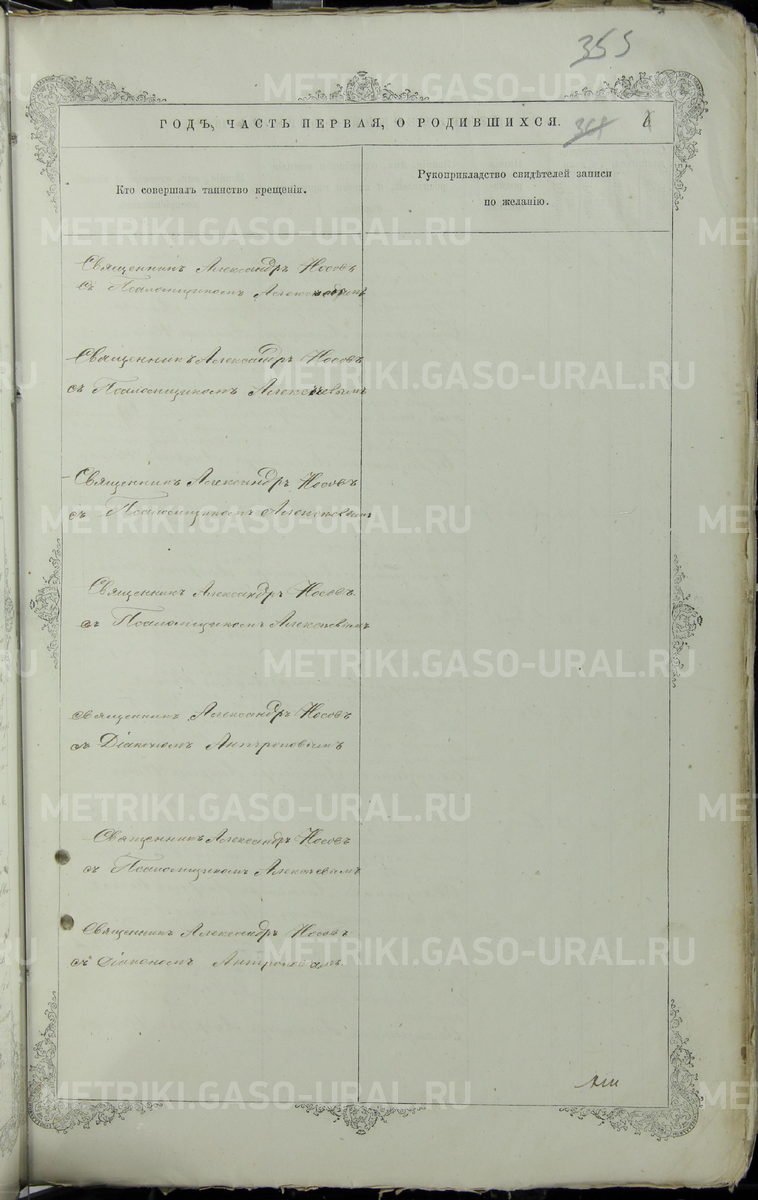 355
ГОДЪ, ЧАСТЬ ПЕРВАЯ, О РОДИВШИХСЯ.
Кто совершалъ таинство крещенія.
Рукоприкладство свидѣтелей записи
по желанію.
Священникъ Александръ Носовъ
съ Псаломщикомъ
Священникъ Александръ Носовъ
съ Псаломщикомъ Алексѣевымъ
Священникъ Александръ Носовъ
съ Псаломщикомъ Алексѣевымъ
Священникъ Александръ Носовъ
съ Псаломщикомъ Алексѣевымъ
Священникъ Александръ Носовъ
съ Діакономъ Антроповымъ
Священникъ Александръ Носовъ
съ Псаломщикомъ Алексѣевымъ
Священникъ Александръ Носовъ
съ Діакономъ Антроповымъ.
METRIKI.GASO-URAL.RU